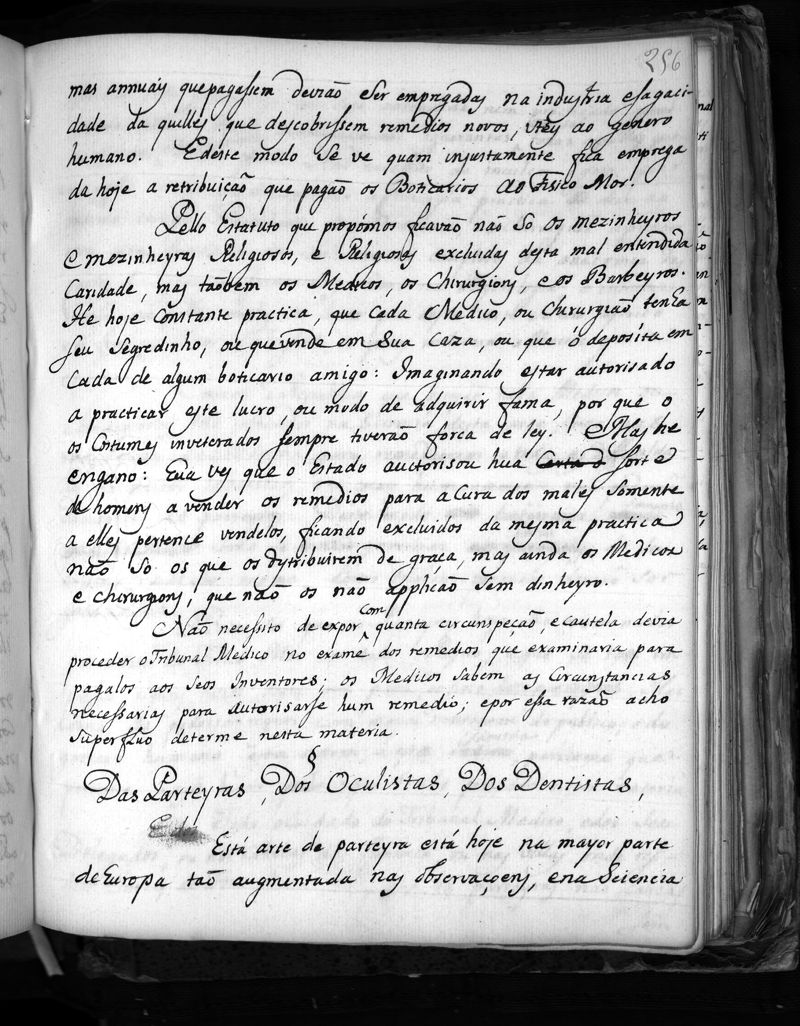 256
mas annuáis que pagassem deviaõ ser empregadas na industria e sagaci-
dade da quelles que descobrissem remedios novos, uteis ao genero
humano. E deste modo se ve quam injustamente fica emprega
da hoje a retribuiçaõ que pagaõ os Boticarios ao Fisico Mor.
Pello Estatuto que propômos ficavaõ naõ so os mezinheyros
e mezinheyras Religiosos, e Religiosas excluidas desta mal entendida
Caridade, mas taõbem os Medicos, os Chirurgions, e os Barbeyros.
He hoje constante practica, que cada Medico, ou Chirurgiaõ tenha
seu segredinho, ou que vende em sua caza, ou que o deposita em
Cada de algum boticario amigo: Imaginando estar autorisado
a practicar este lucro, ou modo de adquirir fama, por que o
os Costumes inveterados sempre tiveraõ forca de ley. Mas he
engano: hua ves que o Estado auctorisou hua sorte
de homens a vender os remedios para a cura dos males somente
a elles pertence vendelos, ficando excluidos da mesma practica
naõ so os que os dystribuirem de graça, mas ainda os Medicos
e chirurgions, que naõ os naõ applicaõ sem dinheyro.
Naõ necessito de expor com quanta circunspeçaõ, e cautela devia
proceder o Tribunal Medico no exame dos remedios que examinaria para
pagalos aos seos Inventores; os Medicos sabem as Circunstancias
necessarias para autorisarse hum remedio; e por essa razaõ acho
superfluo determe nesta materia.
§
Das Parteyras, Dos Oculistas, Dos Dentistas,
Está arte de parteyra está hoje na mayor parte
de Europa taõ augmentada nas observaçoens, e na Sciencia